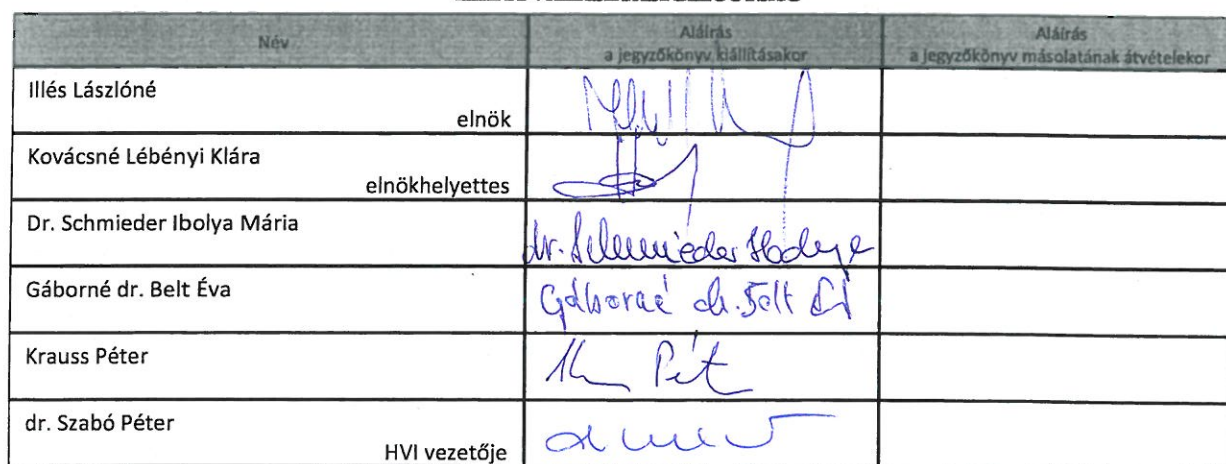 Név
Aláírás
a jegyzőkönyv kiállításakor
Aláírás
a jegyzőkönyv másolatának átvételekor
Illés Lászlóné
elnök
Kovácsné Lébényi Klára
elnökhelyettes
Dr. Schmieder Ibolya Mária
dr. Schmieder Ibolya
Gáborné dr. Belt Éva
Gáborné dr. Belt Éva
Krauss Péter
dr. Szabó Péter
HVI vezetője